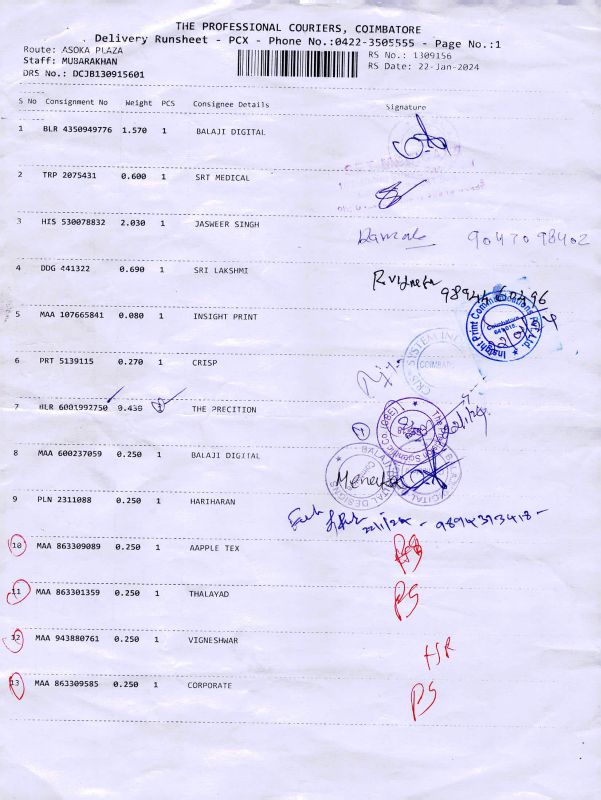 THE PROFESSIONAL COURIERS, COIMBATORE
Delivery Runsheet - PCX - Phone No.:0422-3505555 - Page No.:1
Route: ASOKA PLAZA
RS No.: 1309156
Staff: MUBARAKHAN
RS Date: 22-Jan-2024
DRS No.: DCJB130915601
S No Consignment No Weight PCS Consignee Details Signature
1 BLR 4350949776 1.570 1 BALAJI DIGITAL
2 TRP 2075431 0.600 1 SRT MEDICAL
3 HIS 530078832 2.030 1 JASWEER SINGH 9047098402
4 DDG 441322 0.690 1 SRI LAKSHMI
5 MAA 107665841 0.080 1 INSIGHT PRINT
Insight Print Communications Pvt. Ltd.
Coimbatore
6 PRT 5139115 0.270 1 CRISP
CRISP SYSTEM
COIMBATORE
7 BLR 6001992750 9.430 THE PRECITION
8 MAA 600237059 0.250 1 BALAJI DIGITAL
BALAJI DIGITAL DESIGNS
9 PLN 2311088 0.250 1 HARIHARAN
22/1/24 - 9894313418 -
10 MAA 863309089 0.250 1 AAPPLE TEX RS
11 MAA 863301359 0.250 1 THALAYAD RS
12 MAA 943880761 0.250 1 VIGNESHWAR HR
13 MAA 863309585 0.250 1 CORPORATE RS